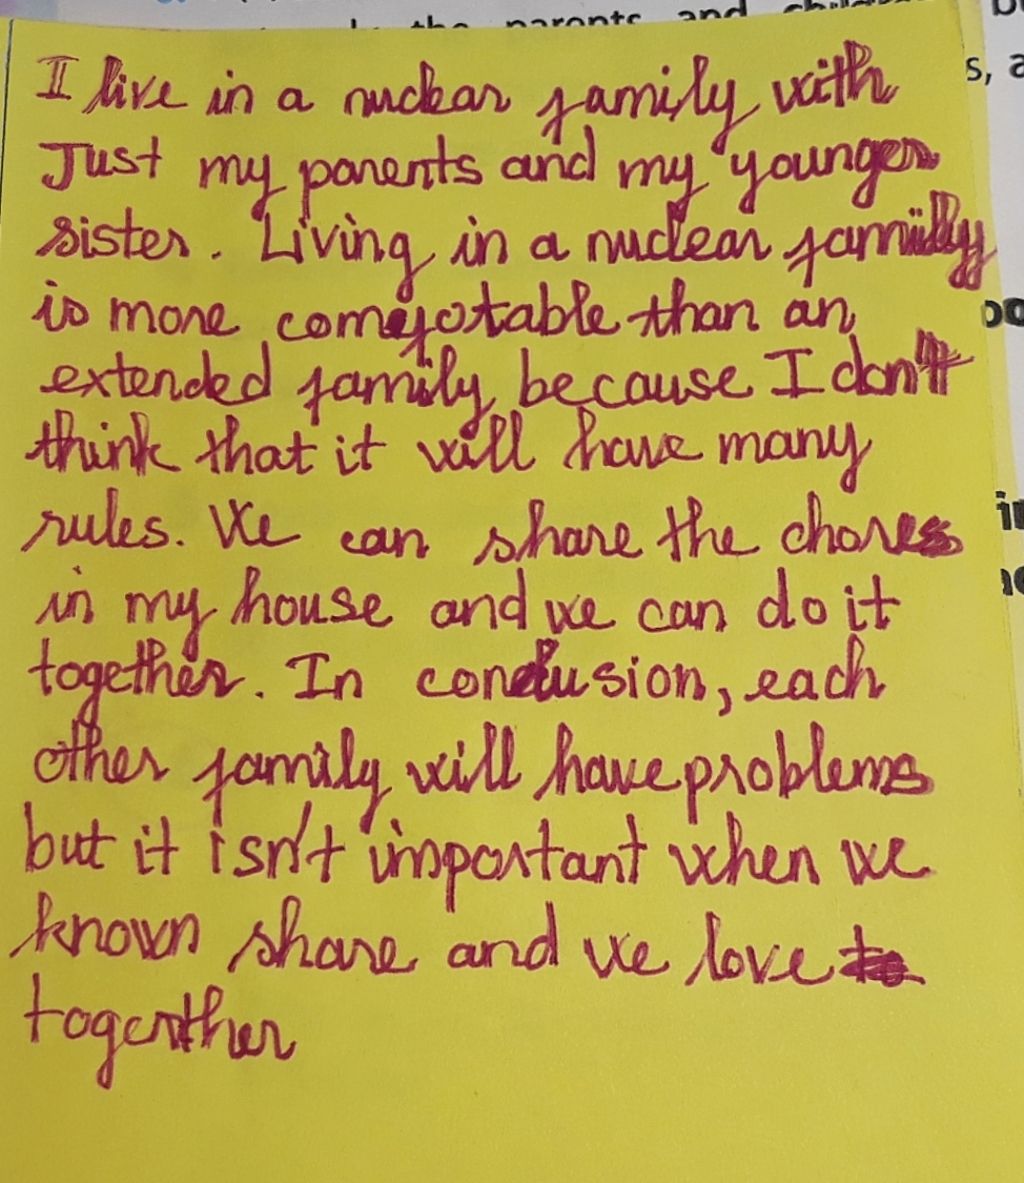 the parents and
s, a
I live in a nuclear family with
Just my parents and my younger
sister. Living in a nuclear family
is more comfotable than an
extended family because I don't
think that it will have many
rules. We can share the chores
in my house and we can do it
together. In conclusion, each
other family will have problems
but it isn't important when we
known share and we love
togerther